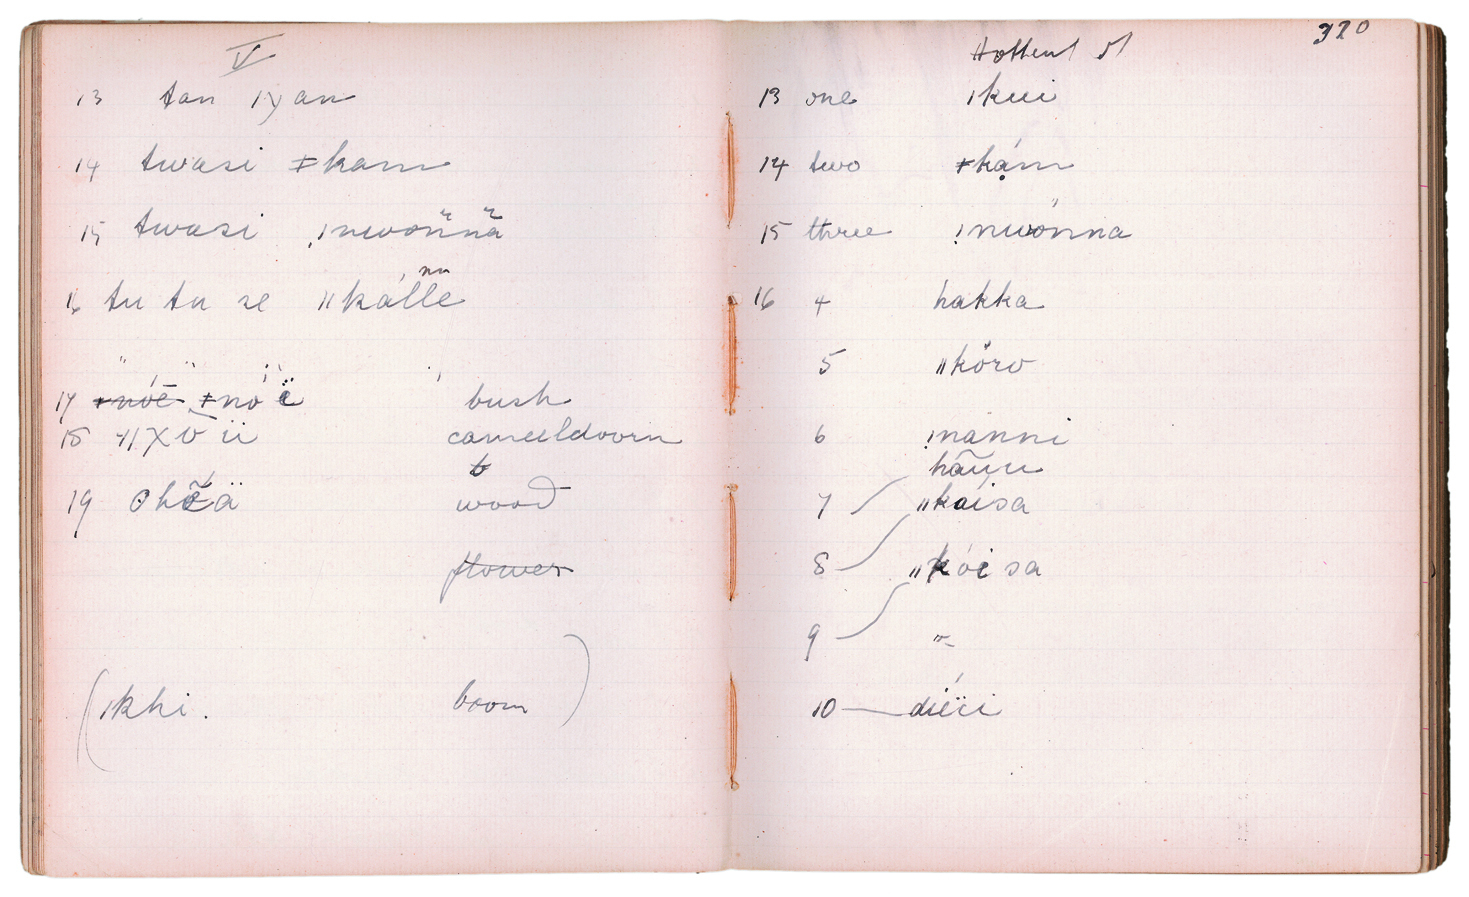 V
13 tan ǀyan
14 twasi ǂkam
15 twasi ǃnwonna
16 tu tu se ǁkálle
nu
17 ǂnóë ǂnóë bush
18 ǁχō ü cameeldoorn
b
19 ohẽä wood
flower
(ǀkhi. boom)
320
Hottent
13 one ǀkui
14 two ǂkạ́m
15 three ǃnwónna
16 4 hakka
5 ǁkōro
6 ǃnanni
hãuu
7 ǁkaísa
8 ǁkóisa
9 〃
10 — diéïi